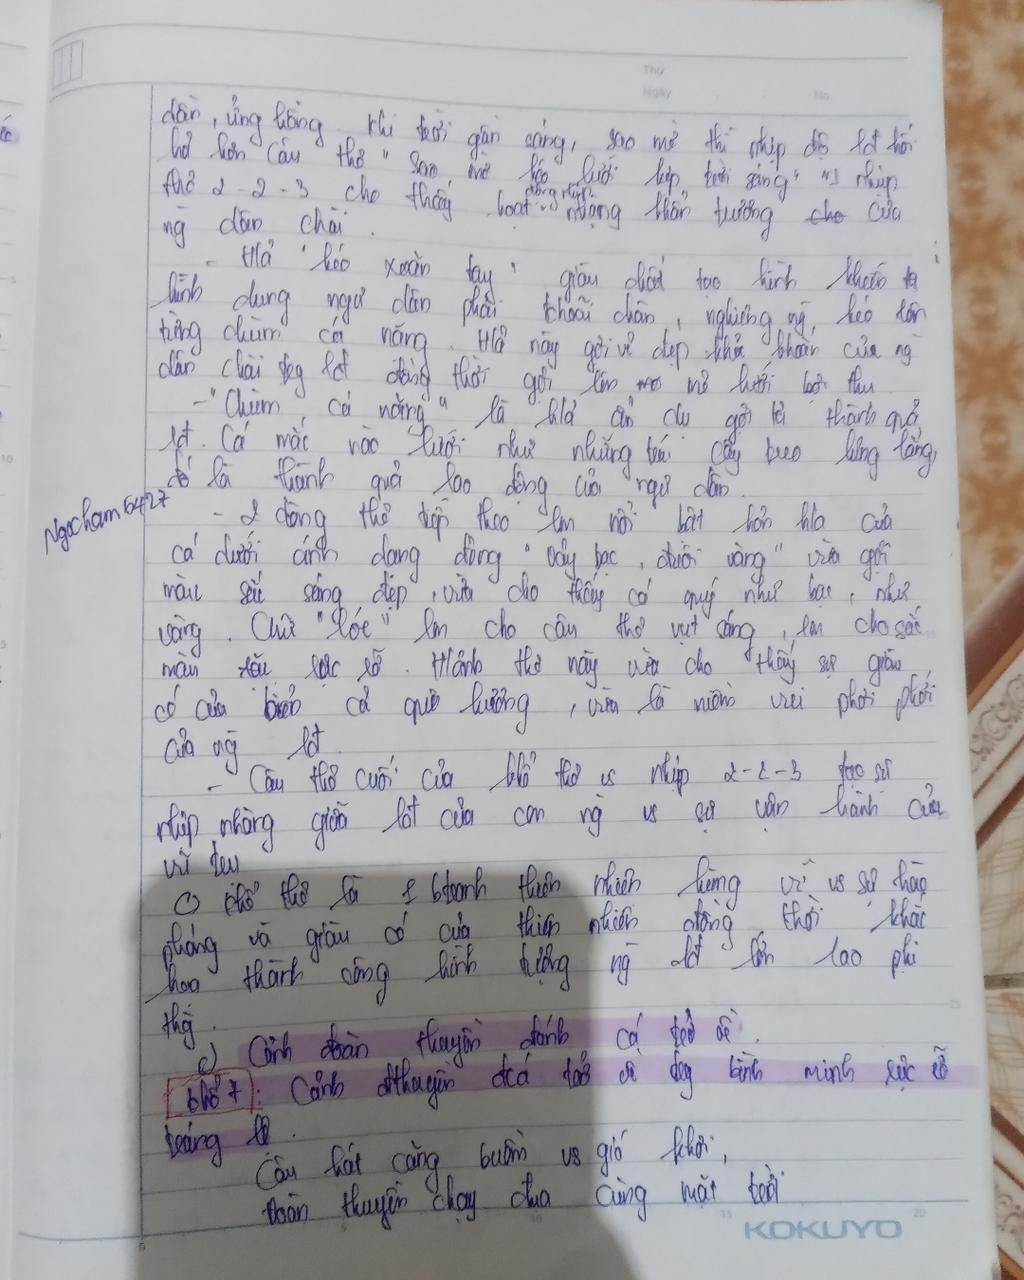 Thứ
Ngày No.
dần, ửng hồng khi trời gần sáng, sao mờ thì nhịp độ lđ hối
hả hơn Câu thơ "Sao mờ kéo lưới kịp trời sáng" vs nhịp
thơ 2-2-3 cho thấy hoạt động nhịp nhàng khẩn trương cho của
ng dân chài.
- Hả "kéo xoăn tay" giàu chất tạo hình khiến ta
hình dung ngư dân phải choãi chân, nghiêng ng, kéo lên
từng chùm cá nặng. Hả này gợi vẻ đẹp khỏe khoắn của ng
dân chài trg lđ đồng thời gợi lên mẻ lưới bội thu
- "Chùm cá nặng" là hả ẩn dụ gợi tả thành quả
lđ. Cá mắc vào lưới như những trái cây treo lủng lẳng,
đó là thành quả lao động của ngư dân.
Ngocham6427
- 2 dòng thơ tiếp theo lm nổi bật hơn hả của
cá dưới ánh dạng đông "vảy bạc, đuôi vàng" vừa gợi
màu sắc sáng đẹp, vừa cho thấy cá quý như bạc, như
vàng. Chữ "lóe" lm cho câu thơ vụt sáng, lm cho sắc
màu rực rỡ. Hình thơ này vừa cho thấy sự giàu
có của biển cả quê hương, vừa là niềm vui phơi phới
của ng lđ.
- Câu thơ cuối của khổ thơ vs nhịp 2-2-3 tạo sự
nhịp nhàng giữa lđ của con ng vs sự vận hành của
vũ trụ
khổ thơ là 1 btranh thiên nhiên hùng vĩ vs sự hào
phóng và giàu có của thiên nhiên đồng thời khắc
họa thành công hình tượng ng lđ lớn lao phi
thg.
c) Cảnh đoàn thuyền đánh cá trở về.
khổ 7: Cảnh đthuyền đcá trở về trg bình minh rực rỡ
tráng lệ.
Câu hát căng buồm vs gió khơi,
Đoàn thuyền chạy đua cùng mặt trời
KOKUYO